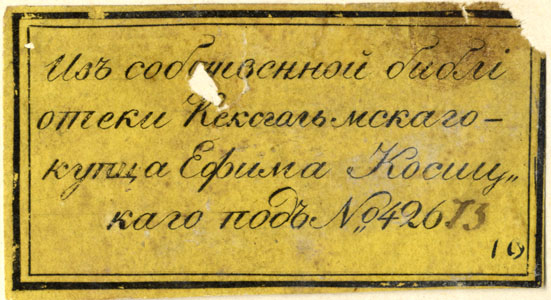 Изъ собственной библі
отеки Кексгольмскаго-
купца Ефима Косиц„
каго подъ №426